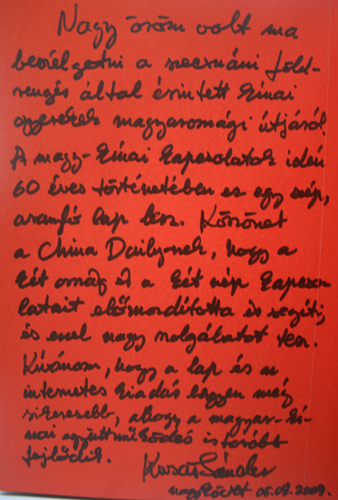 Nagy öröm volt ma
beszélgetni a szecsuáni föld-
rengés által érintett kínai
gyerekek magyarországi útjáról.
A magy-kínai kapcsolatok idén
60 éves történetében ez egy szép,
aranyló lap lesz. Köszönet
a China Dailynek, hogy a
két ország és a két nép kapcso-
latait előmozdította és segíti,
és ezzel nagy szolgálatot tesz.
Kívánom, hogy a lap és az
internetes kiadás legyen még
sikeresebb, ahogy a magyar-kí-
nai együttműködés is tovább
fejlődik. Kusai Sándor
nagykövet 05.08.2009.